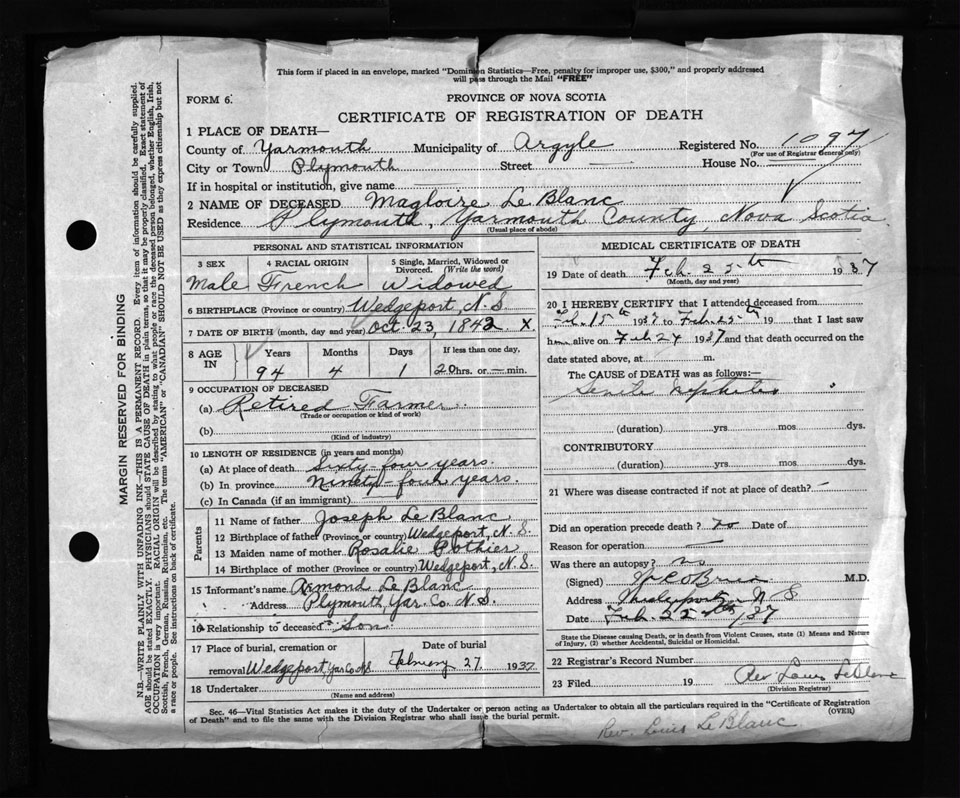 This form if placed in an envelope, marked "Dominion Statistics—Free, penalty for improper use, $300," and properly addressed
will pass through the Mail "FREE"
FORM 6.
PROVINCE OF NOVA SCOTIA
CERTIFICATE OF REGISTRATION OF DEATH
1 PLACE OF DEATH—
County of Yarmouth Municipality of Argyle Registered No. 1097
(For use of Registrar General only)
City or Town Plymouth Street — House No. —
If in hospital or institution, give name
2 NAME OF DECEASED Magloire Le Blanc
Residence Plymouth, Yarmouth County, Nova Scotia
(Usual place of abode)
PERSONAL AND STATISTICAL INFORMATION
3 SEX 4 RACIAL ORIGIN 5 Single, Married, Widowed or Divorced. (Write the word)
Male French Widowed
6 BIRTHPLACE (Province or country) Wedgeport, N.S.
7 DATE OF BIRTH (month, day and year) Oct. 23, 1842 x
8 AGE IN Years Months Days If less than one day,
94 4 1 20 hrs. or — min.
9 OCCUPATION OF DECEASED
(a) Retired Farmer
(Trade or occupation or kind of work)
(b)
(Kind of industry)
10 LENGTH OF RESIDENCE (in years and months)
(a) At place of death Sixty-four years.
(b) In province Ninety-four years.
(c) In Canada (if an immigrant)
Parents
11 Name of father Joseph Le Blanc
12 Birthplace of father (Province or country) Wedgeport, N.S.
13 Maiden name of mother Rosalie Pothier
14 Birthplace of mother (Province or country) Wedgeport, N.S.
15 Informant's name Armond Le Blanc
Address Plymouth, Yar. Co. N.S.
16 Relationship to deceased Son
17 Place of burial, cremation or Date of burial
removal Wedgeport Yar Co NS February 27 1937
18 Undertaker
(Name and address)
MEDICAL CERTIFICATE OF DEATH
19 Date of death Feb. 25th 1937
(Month, day and year)
20 I HEREBY CERTIFY that I attended deceased from
Feb. 15th 1937 to Feb. 25th 19 that I last saw
h alive on Feb 24 1937 and that death occurred on the
date stated above, at m.
The CAUSE OF DEATH was as follows:—
Senile
(duration) yrs mos dys.
CONTRIBUTORY
(duration) yrs. mos. dys.
21 Where was disease contracted if not at place of death? —
Did an operation precede death? no Date of
Reason for operation —
Was there an autopsy? no
(Signed) M.D.
Address N S
Date Feb. /37
State the Disease causing Death, or in death from Violent Causes, state (1) Means and Nature
of Injury, (2) whether Accidental, Suicidal or Homicidal.
22 Registrar's Record Number
23 Filed 19 Rev Louis LeBlanc
(Division Registrar)
Sec. 46—Vital Statistics Act makes it the duty of the Undertaker or person acting as Undertaker to obtain all the particulars required in the "Certificate of Registration
of Death" and to file the same with the Division Registrar who shall issue the burial permit.
(OVER)
Rev. Louis Le Blanc
MARGIN RESERVED FOR BINDING
N.B.—WRITE PLAINLY WITH UNFADING INK—THIS IS A PERMANENT RECORD. Every item of information should be carefully supplied.
AGE should be stated EXACTLY. PHYSICIANS should STATE CAUSE OF DEATH in plain terms, so that it may be properly classified. Exact statement of
OCCUPATION is very important. RACIAL ORIGIN will be described by stating to what people or race the deceased person belonged, whether English, Irish,
Scottish, French, German, Russian, Ruthenian, etc. The terms "AMERICAN" or "CANADIAN" SHOULD NOT BE USED as they express citizenship but not
a race or people. See instructions on back of certificate.